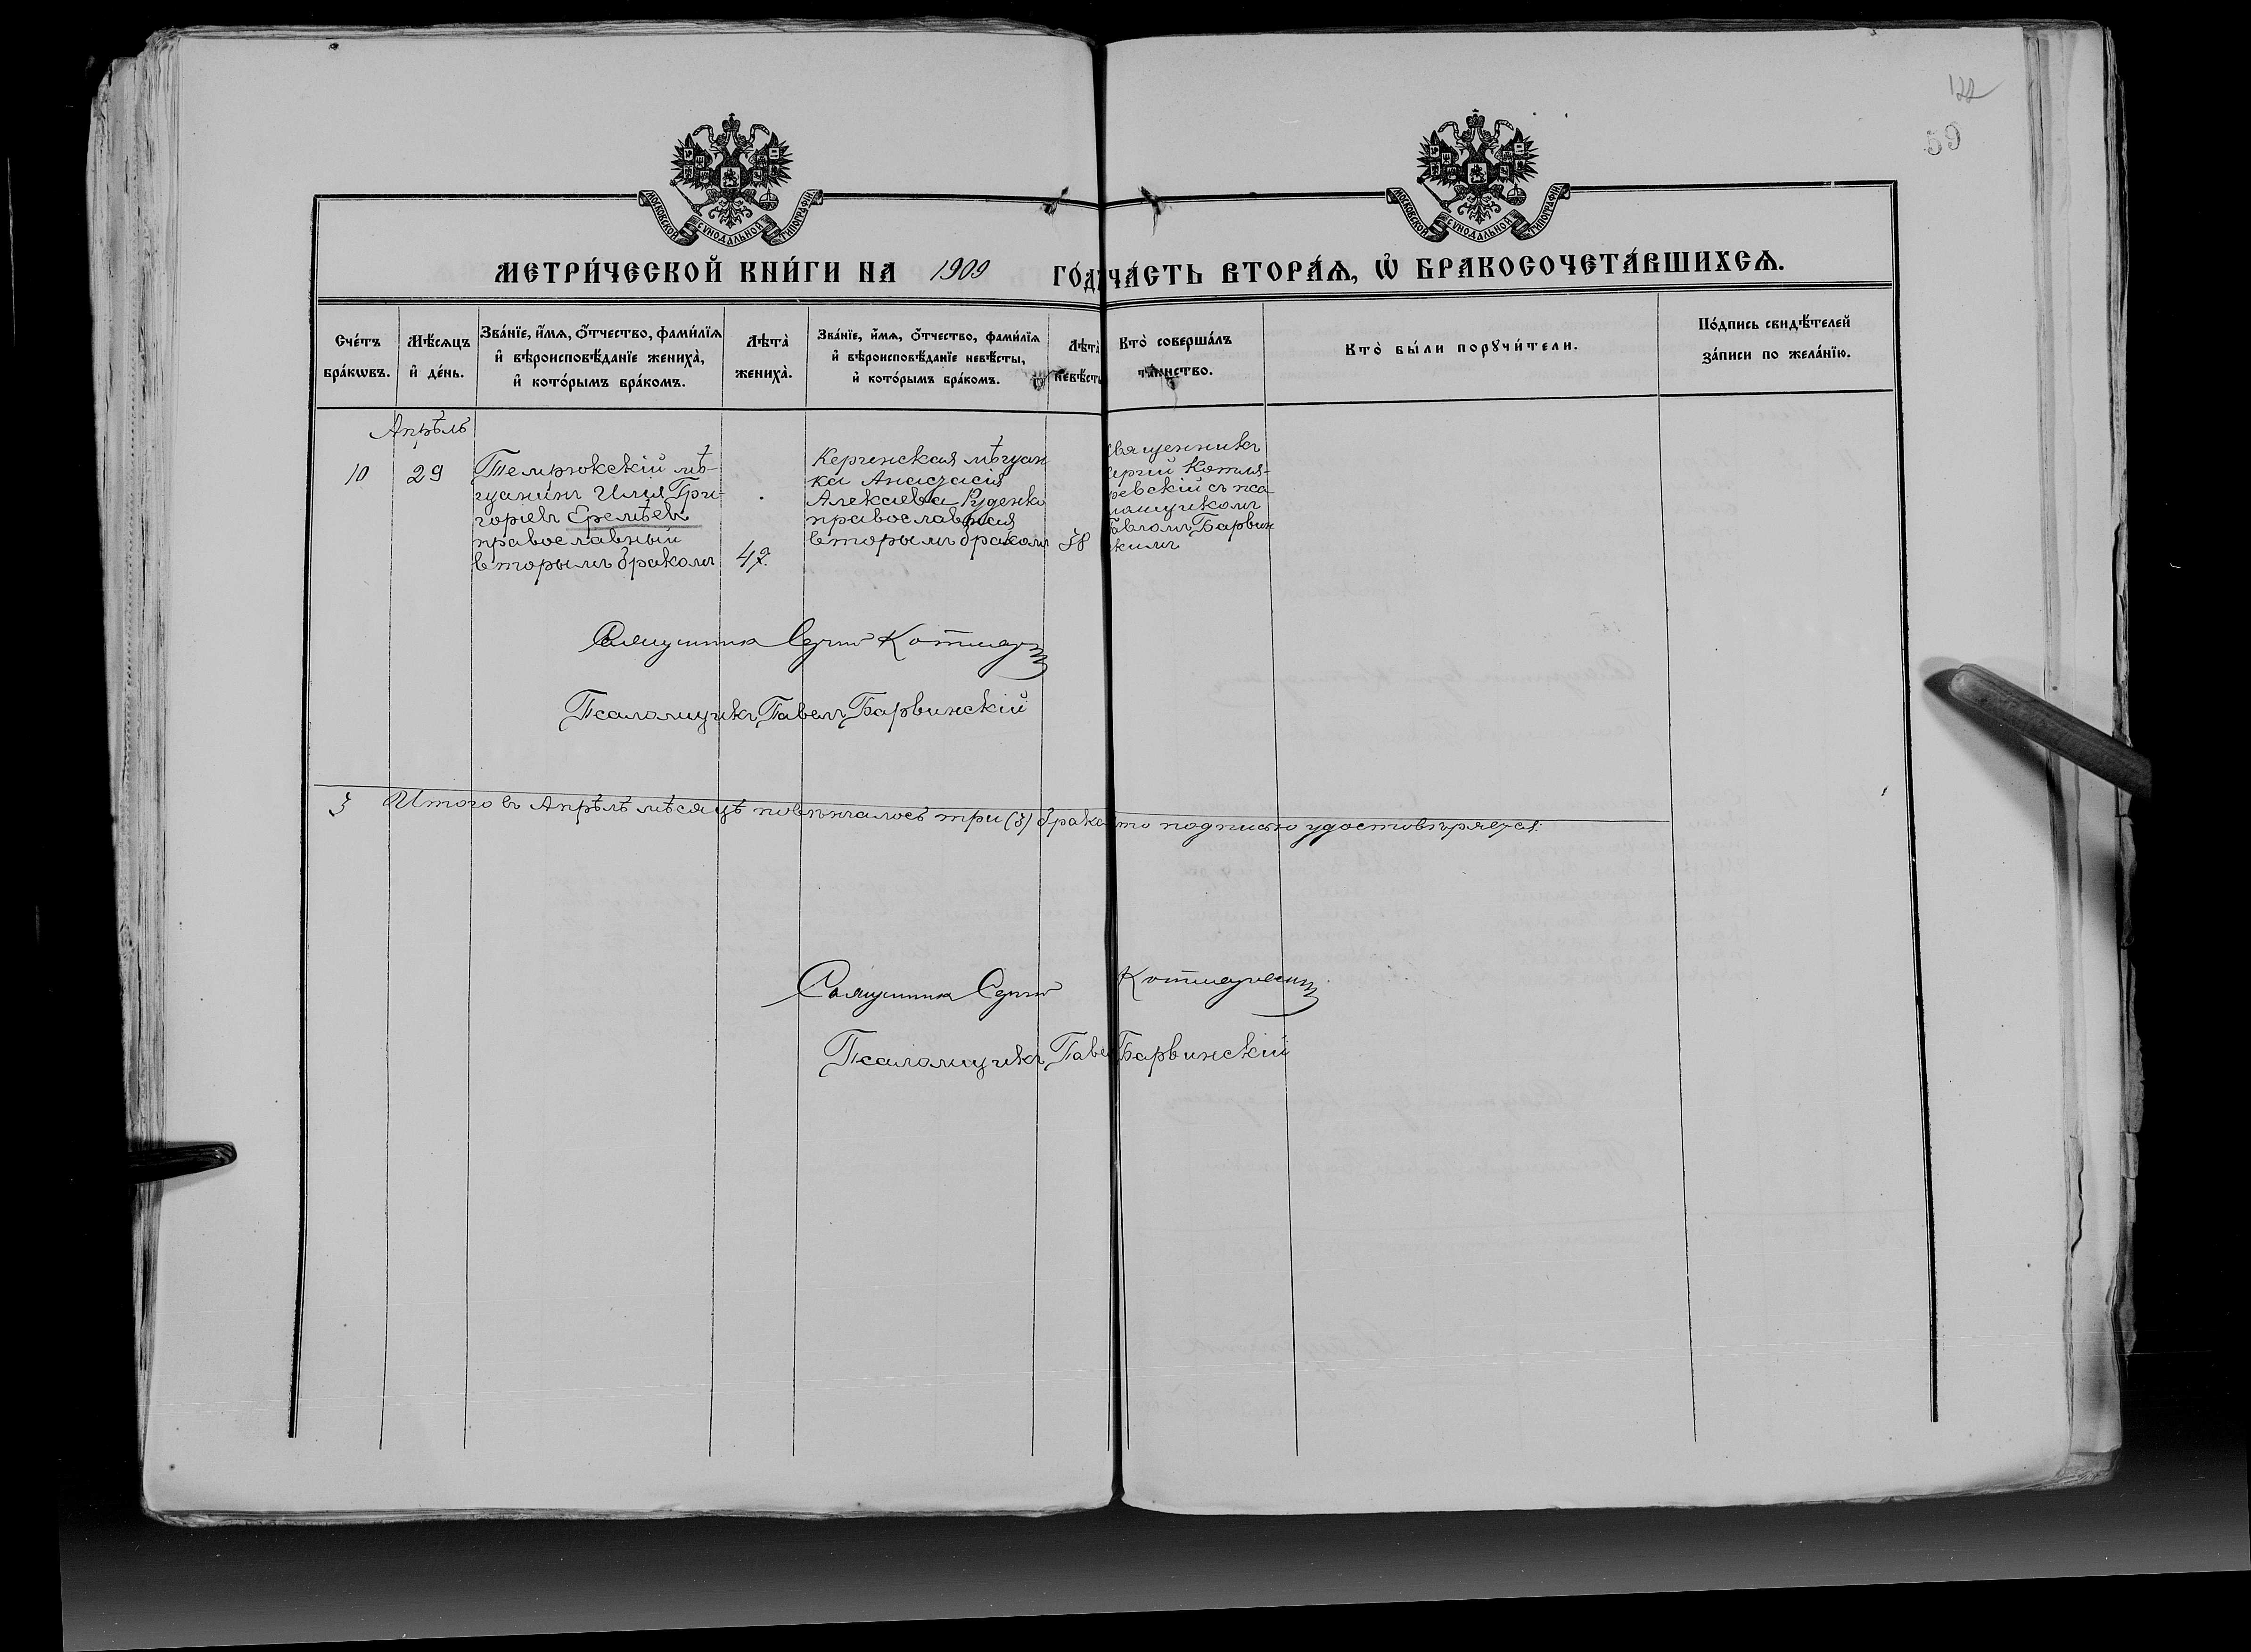 122
59
МОСКОВСКОЙ СѴНОДАЛЬНОЙ ТИПОГРАФІИ
МОСКОВСКОЙ СѴНОДАЛЬНОЙ ТИПОГРАФІИ
МЕТРИ́ЧЕСКОЙ КНИ́ГИ НА 1909 ГО́Д ЧА́СТЬ ВТОРА́Ѧ, Ѡ҆ БРАКОСОЧЕТА́ВШИХСѦ.
Сче́тъ
бра́кѡвъ.
Мѣ́сѧцъ
и҆ де́нь.
Зва́нїе, и҆́мѧ, ѻ҆́тчество, фами́лїѧ
и҆ вѣроисповѣ́данїе жениха̀,
и҆ кото́рымъ бра́комъ.
Лѣта̀
жениха̀.
Зва́нїе, и҆́мѧ, ѻ҆́тчество, фами́лїѧ
и҆ вѣроисповѣ́данїе невѣ́сты,
и҆ кото́рымъ бра́комъ.
Лѣта̀
невѣ́сты
Кто̀ соверша́лъ
та́инство.
Кто̀ бы́ли порꙋчи́тели.
По́дпись свидѣ́телей
за́писи по жела́нїю.
Апрѣль
10
29
Темрюкскій мѣ-
щанинъ Илия Гри-
горіевъ Еремѣевъ
православный
вторымъ бракомъ
47.
Керченская мѣщан
ка Анастасія
Алексиева Руденко
православная
вторымъ бракомъ
38
священникъ
ергий Котля-
ревскій съ пса-
ломщикомъ
Павломъ Барвин
скимъ
Священник Сергий Котляр
Псаломщикъ Павелъ Барвинскій
3 Итого въ Апрѣлѣ мѣсяцѣ повѣнчалось три (3) брака что подписью удостовѣряется:
Священник Сергий Котляревский
Псаломщикъ Павел Барвинскій